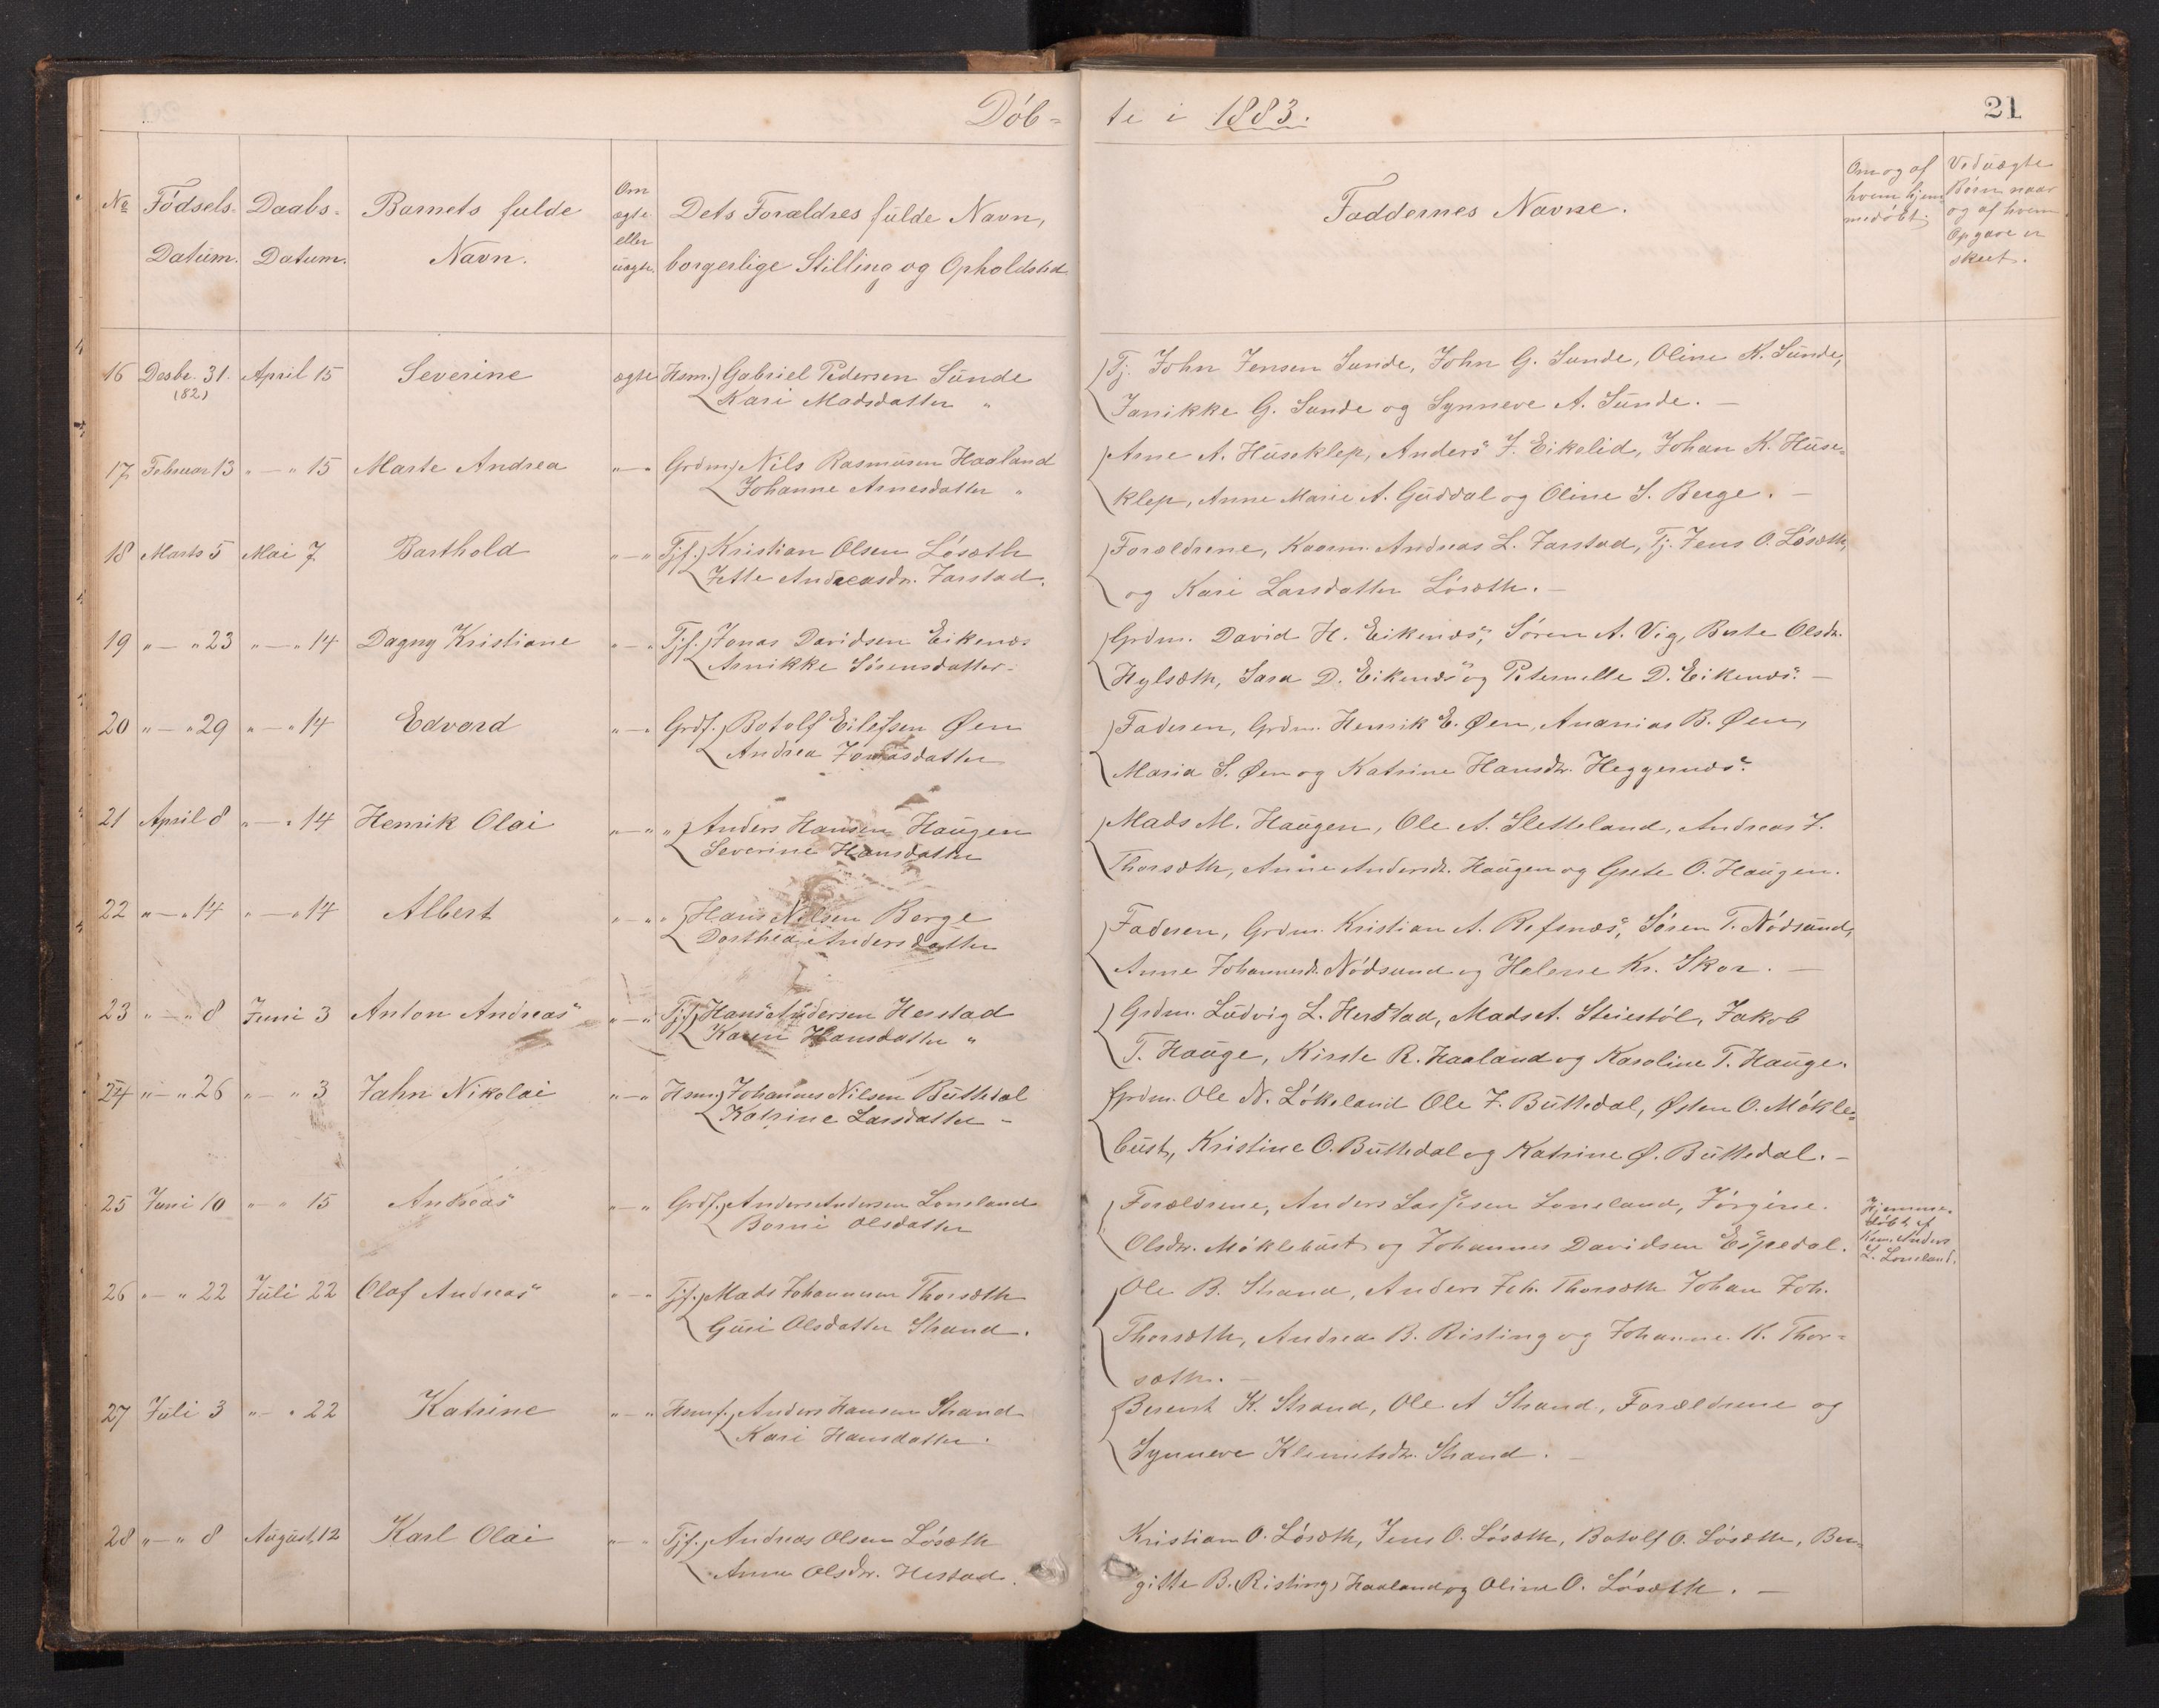 Döb-
te i 1883.
21
№ Födsels- Datum. Daabs- Datum. Barnets fulde Navn. Om ægte eller uægte. Dets Forældres fulde Navn, borgerlige Stilling og Opholdsted
Faddernes Navne. Om og af hvem hjemmedöbt. Ved uægte Börn naar og af hvem Opgave er skeet.
16 Desbr. 31. April 15 Severine ægte Hsm. Gabriel Pedersen Sunde
(82) Kari Madsdatter "
Tj. John Jensen Sunde, John G. Sunde, Oline K. Sunde,
Janikke G. Sunde og Synneve A. Sunde. —
17 Februar 13 " — " 15 Marte Andrea " — " Grdm. Nils Rasmusen Haaland
Johanne Arnesdatter "
Arne A. Huseklep, Anders J. Eikelid, Johan K. Huse-
klep, Anne Marie A. Guddal og Oline S. Berge. —
18 Marts 5 Mai 7 Barthold " — " Tjf. Kristian Olsen Lösæth
Jette Andreasdr. Jarstad.
Forældrene, Kaarm. Andreas L. Jarstad, Tj. Jens O. Lösæth,
og Kari Larsdatter Lösæth. —
19 " — " 23 " — " 14 Dagny Kristiane " — " Tjf. Jonas Davidsen Eikenæs
Arnikke Sörensdatter -
Grdm. David H. Eikenæs, Sören A. Vig, Berte Olsdr.
Hylsæth, Sara D. Eikenæs og Peternelle D. Eikenæs. —
20 " — " 29 " — " 14 Edvard " — " Grdf. Botolf Eilefsen Øen
Andrea Jonasdatter
Faderen, Grdm. Henrik E. Øen, Ananias B. Øen,
Maria S. Øen og Katrine Hansdr. Heggernæs.
21 April 8 " — " 14 Henrik Olai " — " " Anders Hansen Haugen
Severine Hansdatter
Mads M. Haugen, Ole A. Sletteland, Andreas J.
Thorsæth, Anne Andersdr. Haugen og Grete O. Haugen.
22 " — " 14 " — " 14 Albert " — " " Hans Nilsen Berge
Dorthea Andersdatter
Faderen, Grdm. Kristian A. Refsnæs, Sören T. Nödsund,
Anne Johannesdr. Nödsund og Helene Kr. Skor. —
23 " — " 8 Juni 3 Anton Andreas " — " Tjf. Hans Andersen Herstad
Karen Hansdatter "
Grdm. Ludvig L. Herstad, Mads A. Steiestöl, Jakob
T. Hauge, Kirste R. Haaland og Karoline T. Hauge.
24 " — " 26 " — " 3 Jahn Nikolai " — " Hsm. Johannes Nilsen Buttedal
Katrine Larsdatter -
Grdm. Ole N. Lökeland Ole J. Buttedal, Østen O. Mökle-
bust, Kristine O. Buttedal og Katrine Ø. Buttedal. —
25 Juni 10 " — " 15 Andreas " — " Grdf. Anders Andersen Loneland
Borni Olsdatter
Forældrene, Anders Lassesen Loneland, Jörgine
Olsdr. Möklebust og Johannes Davidsen Espedal.
Hjemme-
döbt af
Anders
L. Loneland.
26 " — " 22 Juli 22 Olaf Andreas " — " Tjf. Mads Johannesen Thorsæth
Guri Olsdatter Strand.
Ole B. Strand, Anders Joh. Thorsæth Johan Joh.
Thorsæth, Andrea B. Risting og Johanne K. Thor-
sæth. —
27 Juli 3 " — " 22 Katrine " — " Hsmf. Anders Hansen Strand
Kari Hansdatter.
Berent K. Strand, Ole A Strand, Forældrene og
Synneve Klemetsdr. Strand. —
28 " — " 8 August 12 Karl Olai " — " Tjf. Andreas Olsen Lösæth
Anne Olsdr. Hestad.
Kristian O. Lösæth, Jens O. Lösæth, Botolf O. Lösæth, Ber-
gitte B. (Risting) Haaland og Oline O. Lösæth. —